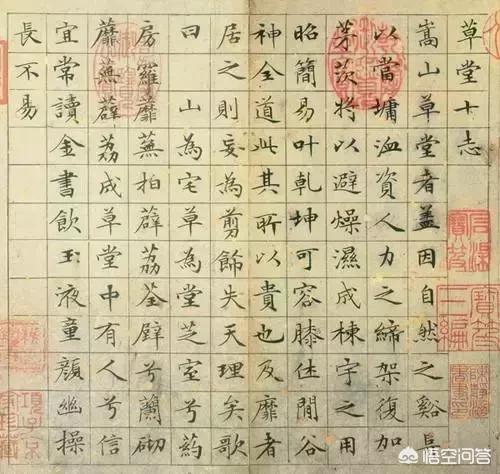 草堂十志
嵩山草堂者盖因自然之谿阜
以當墉洫資人力之締架復加
茅茨将以避燥濕成棟宇之用
昭簡易叶乾坤可容膝休閒谷
神全道此其所以貴也及靡者
居之則妄為剪餝失天理矣歌
曰 山為宅草為堂芝室兮葯
房羅蘼蕪拍薜荔荃壁兮蘭砌
蘼蕪薜荔成草堂中有人兮信
宜常讀金書飲玉液童顏幽操
長不易
悟空问答